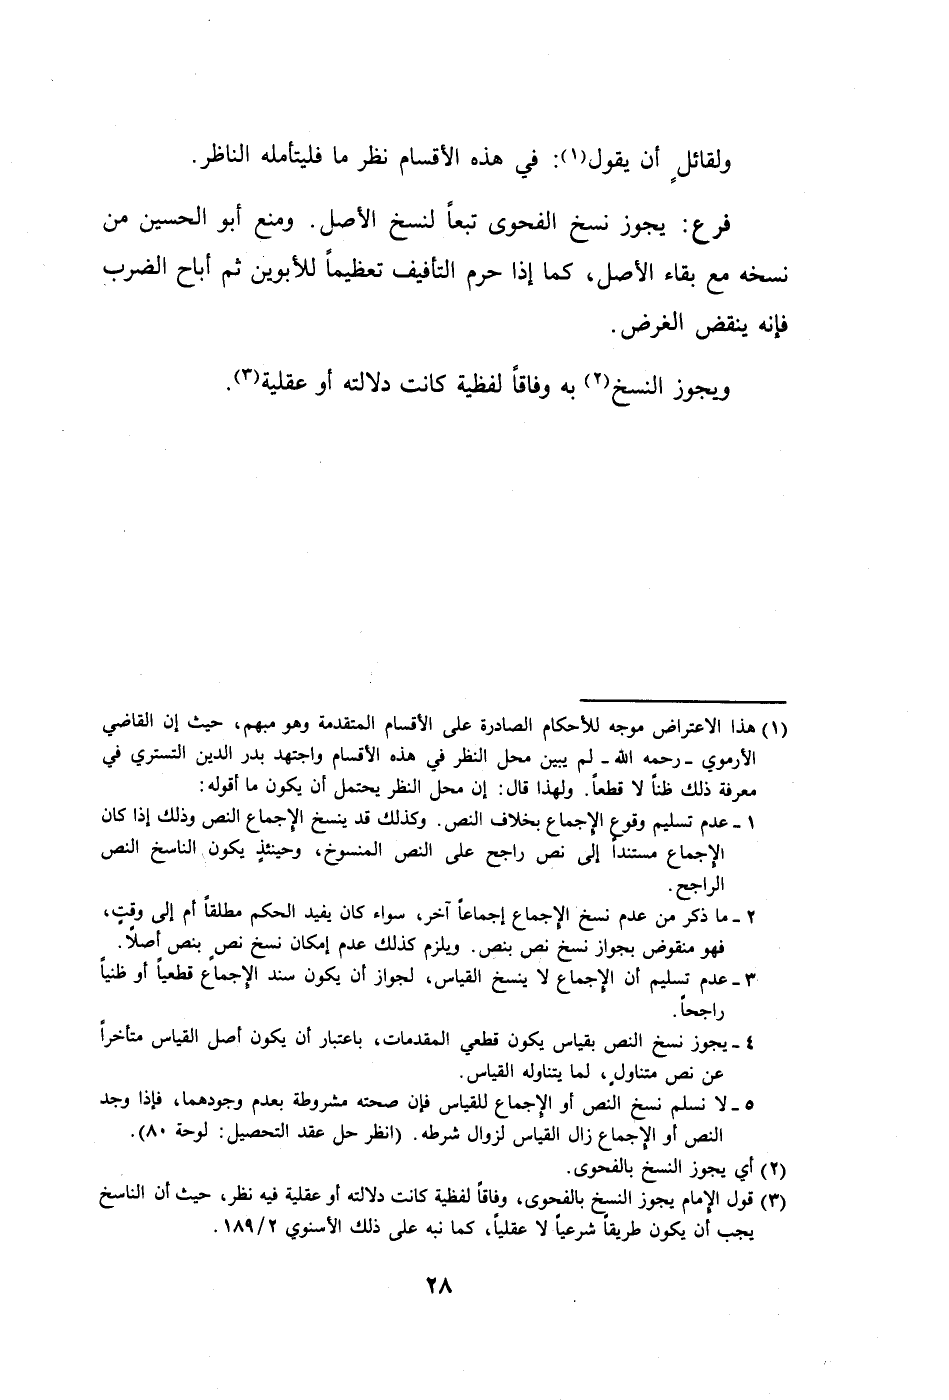 ولقائلٍ أن يقول(١): في هذه الأقسام نظر ما فليتأمله الناظر.
فرع: يجوز نسخ الفحوى تبعاً لنسخ الأصل. ومنع أبو الحسين من
نسخه مع بقاء الأصل، كما إذا حرم التأفيف تعظيماً للأبوين ثم أباح الضرب
فإنه ينقض الغرض.
ويجوز النسخ(٢) به وفاقاً لفظية كانت دلالته أو عقلية(٣).
(١) هذا الاعتراض موجه للأحكام الصادرة على الأقسام المتقدمة وهو مبهم، حيث إن القاضي
الأرموي - رحمه الله - لم يبين محل النظر في هذه الأقسام واجتهد بدر الدين التستري في
معرفة ذلك ظناً لا قطعاً. ولهذا قال: إن محل النظر يحتمل أن يكون ما أقوله:
١ - عدم تسليم وقوع الإجماع بخلاف النص. وكذلك قد ينسخ الإجماع النص وذلك إذا كان
الإجماع مستنداً إلى نص راجح على النص المنسوخ، وحينئذٍ يكون الناسخ النص
الراجح.
٢ - ما ذكر من عدم نسخ الإجماع إجماعاً آخر، سواء كان يفيد الحكم مطلقاً أم إلى وقتٍ،
فهو منقوض بجواز نسخ نص بنص. ويلزم كذلك عدم إمكان نسخ نصٍ بنص أصلاً.
٣ - عدم تسليم أن الإجماع لا ينسخ القياس، لجواز أن يكون سند الإجماع قطعياً أو ظنياً
راجحاً.
٤ - يجوز نسخ النص بقياس يكون قطعي المقدمات، باعتبار أن يكون أصل القياس متأخراً
عن نص متناولٍ، لما يتناوله القياس.
٥ - لا نسلم نسخ النص أو الإجماع للقياس فإن صحته مشروطة بعدم وجودهما، فإذا وجد
النص أو الإجماع زال القياس لزوال شرطه. (انظر حل عقد التحصيل: لوحة ٨٠).
(٢) أي يجوز النسخ بالفحوى.
(٣) قول الإمام يجوز النسخ بالفحوى، وفاقاً لفظية كانت دلالته أو عقلية فيه نظر، حيث أن الناسخ
يجب أن يكون طريقاً شرعياً لا عقلياً، كما نبه على ذلك الأسنوي ٢/ ١٨٩.
٢٨